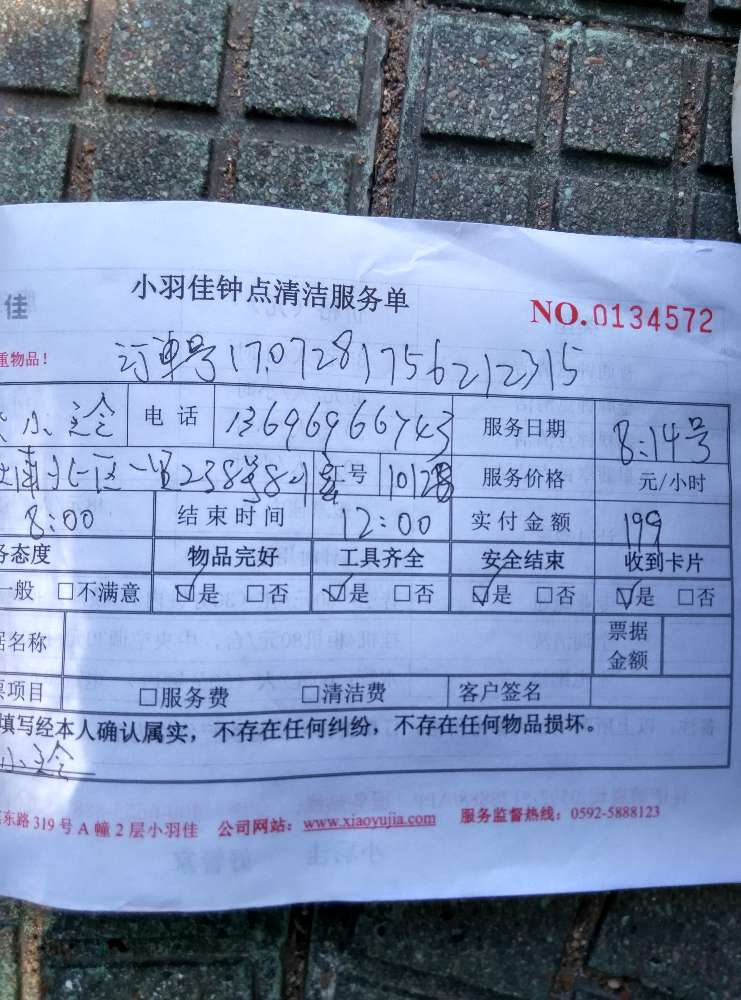 小羽佳钟点清洁服务单
佳 NO.0134572
重物品！ 订单号1707281756212315
小 电话 13696966743 服务日期 8:14号
南北区 238号 工号 10128 服务价格 元/小时
8:00 结束时间 12:00 实付金额 199
务态度 物品完好 工具齐全 安全结束 收到卡片
一般 □不满意 ☑是 □否 ☑是 □否 ☑是 □否 ☑是 □否
据名称 票据金额
票项目 □服务费 □清洁费 客户签名
填写经本人确认属实，不存在任何纠纷，不存在任何物品损坏。
小
东路319号A幢2层小羽佳 公司网站：www.xiaoyujia.com 服务监督热线：0592-5888123